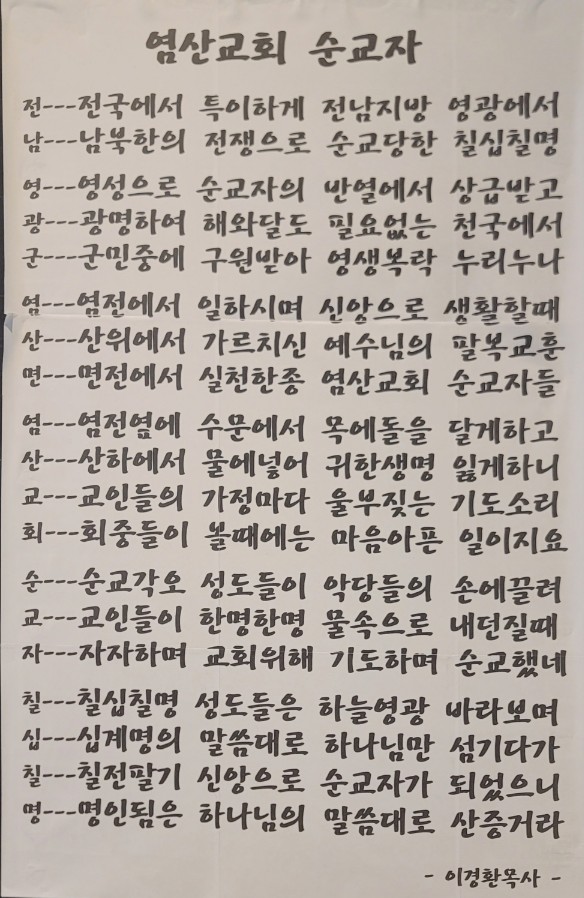 염산교회 순교자
전---전국에서 특이하게 전남지방 영광에서
남---남북한의 전쟁으로 순교당한 칠십칠명
영---영성으로 순교자의 반열에서 상급받고
광---광명하여 해와달도 필요없는 천국에서
군---군민중에 구원받아 영생복락 누리누나
염---염전에서 일하시며 신앙으로 생활할때
산---산위에서 가르치신 예수님의 팔복교훈
면---면전에서 실천한종 염산교회 순교자들
염---염전옆에 수문에서 목에돌을 달게하고
산---산하에서 물에넣어 귀한생명 잃게하니
교---교인들의 가정마다 울부짖는 기도소리
회---회중들이 볼때에는 마음아픈 일이지요
순---순교각오 성도들이 악당들의 손에끌려
교---교인들이 한명한명 물속으로 내던질때
자---자자하며 교회위해 기도하며 순교했네
칠---칠십칠명 성도들은 하늘영광 바라보며
십---십계명의 말씀대로 하나님만 섬기다가
칠---칠전팔기 신앙으로 순교자가 되었으니
명---명인됨은 하나님의 말씀대로 산증거라
- 이경환목사 -